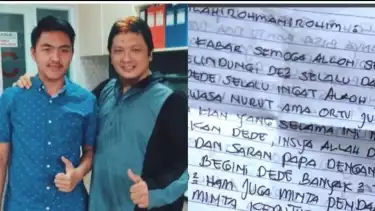 ILAHIROHMANIROHIM :
KABAR SEMOGA ALLOH SE
ELINDUNGI DEZ SELALU DA
DEDE SELALU INGAT ALAOH
WASA NURUT AMA ORTU JU
HAH YANG SELAMA INI
KAN DEDE, INSYA ALLAH D
DAN SARAN PAPA DENGAN
BEGINI DEDE BANYAK 3
HAM JUGA MINTA PENDA
MINTA